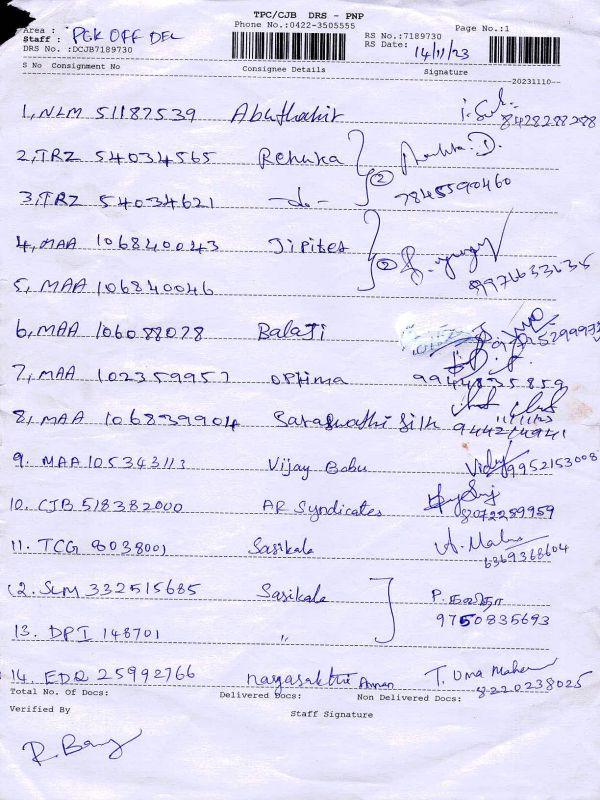 TPC/CJB DRS - PNP
Area : PGK OFF DEL Phone No.:0422-3505555 Page No.:1
Staff : RS No.:7189730
DRS No. :DCJB7189730 RS Date: 14/11/23
S No Consignment No Consignee Details Signature
--20231110--
1, NLM 51187539 Abuthahir 8428288288
2, TRZ 54034565 Renuka } 2
3, TRZ 54034621 -do- 7845590460
4, MAA 106840043 Jipites } 2
5, MAA 106840046 9976633635
6, MAA 106088078 Balaji
7, MAA 102359957 optima 9944835859
8, MAA 106839904 Saraswathi Silk 11/11/23
9. MAA 105343113 Vijay Babu Vidy 9952153008
10. CJB 518382000 AR Syndicates 8072289959
11. TCG 8038001 Sasikala A. Maha 6369368604
12. SLM 332515685 Sasikala P. கவிதா
13. DPI 148701 " 9750835693
14. EDR 25992766 nagasakthi Amman T. Uma Mahes 8220238025
Total No. Of Docs: Delivered Docs: Non Delivered Docs:
Verified By Staff Signature